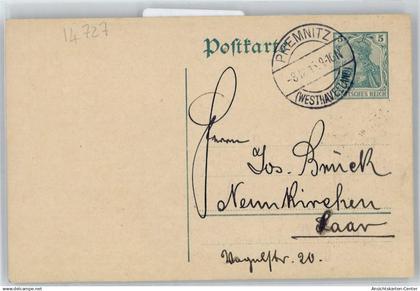 14727
Postkarte
PREMNITZ
(WESTHAVELLAND)
5
DEUTSCHES REICH
Herrn
Jos. Brück
Neunkirchen
Saar
20.
Ansichtskarten-Center